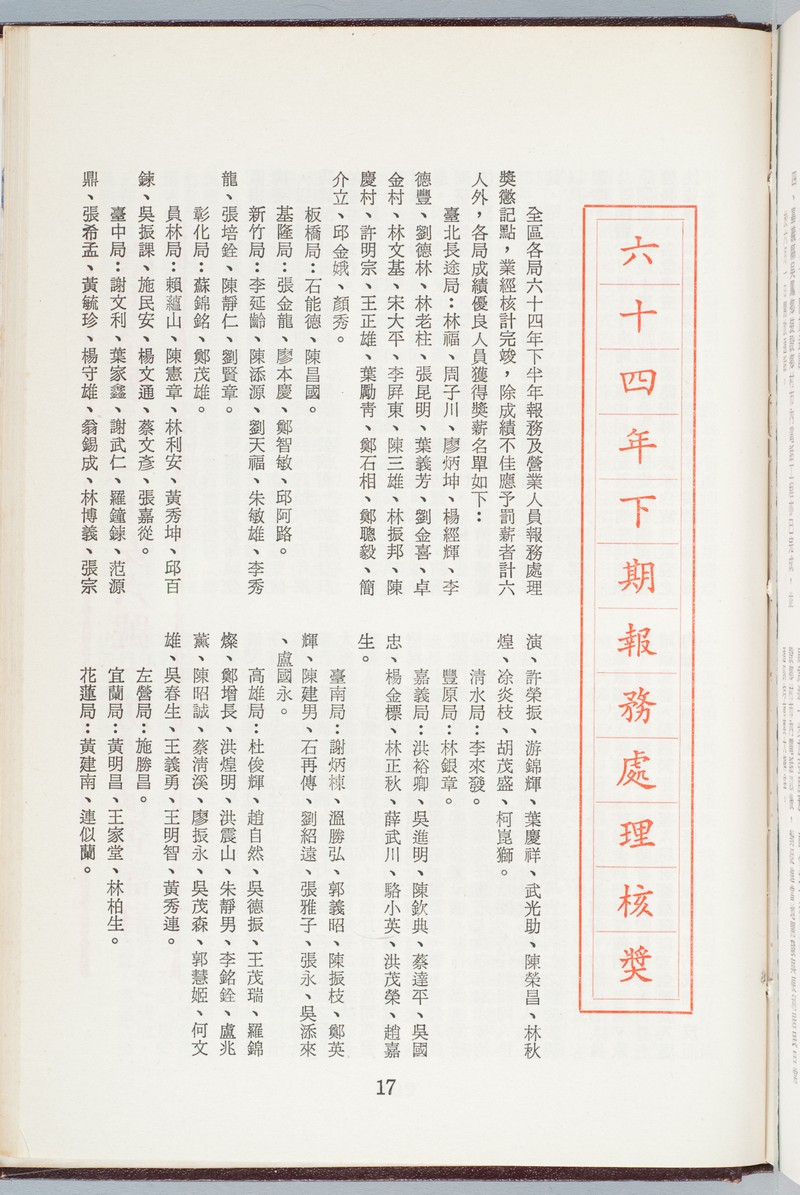 六十四年下期報務處理核獎
全區各局六十四年下半年報務及營業人員報務處理
獎懲記點，業經核計完竣，除成績不佳應予罰薪者計六
人外，各局成績優良人員獲得獎薪名單如下：
臺北長途局：林福、周子川、廖炳坤、楊經輝、李
德豐、劉德林、林老柱、張昆明、葉義芳、劉金喜、卓
金村、林文基、宋大平、李屏東、陳三雄、林振邦、陳
慶村、許明宗、王正雄、葉勵青、鄭石相、鄭聰毅、簡
介立、邱金娥、顏秀。
板橋局：石能德、陳昌國。
基隆局：張金龍、廖本慶、鄭智敏、邱阿路。
新竹局：李延齡、陳添源、劉天福、朱敏雄、李秀
龍、張培銓、陳靜仁、劉賢章。
彰化局：蘇錦銘、鄭茂雄。
員林局：賴蘊山、陳憲章、林利安、黃秀坤、邱百
鍊、吳振課、施民安、楊文通、蔡文彥、張嘉從。
臺中局：謝文利、葉家鑫、謝武仁、羅鐘鍊、范源
鼎、張希孟、黃毓珍、楊守雄、翁錫成、林博義、張宗
演、許榮振、游錦輝、葉慶祥、武光助、陳榮昌、林秋
煌、凃炎枝、胡茂盛、柯崑獅。
清水局：李來發。
豐原局：林銀章。
嘉義局：洪裕卿、吳進明、陳欽典、蔡達平、吳國
忠、楊金標、林正秋、薛武川、駱小英、洪茂榮、趙嘉
生。
臺南局：謝炳棟、溫勝弘、郭義昭、陳振枝、鄭英
輝、陳建男、石再傳、劉紹遠、張雅子、張永、吳添來
、盧國永。
高雄局：杜俊輝、趙自然、吳德振、王茂瑞、羅錦
燦、鄭增長、洪煌明、洪震山、朱靜男、李銘銓、盧兆
薰、陳昭誠、蔡清溪、廖振永、吳茂森、郭慧姬、何文
雄、吳春生、王義勇、王明智、黃秀連。
左營局：施勝昌。
宜蘭局：黃明昌、王家堂、林柏生。
花蓮局：黃建南、連似蘭。
17